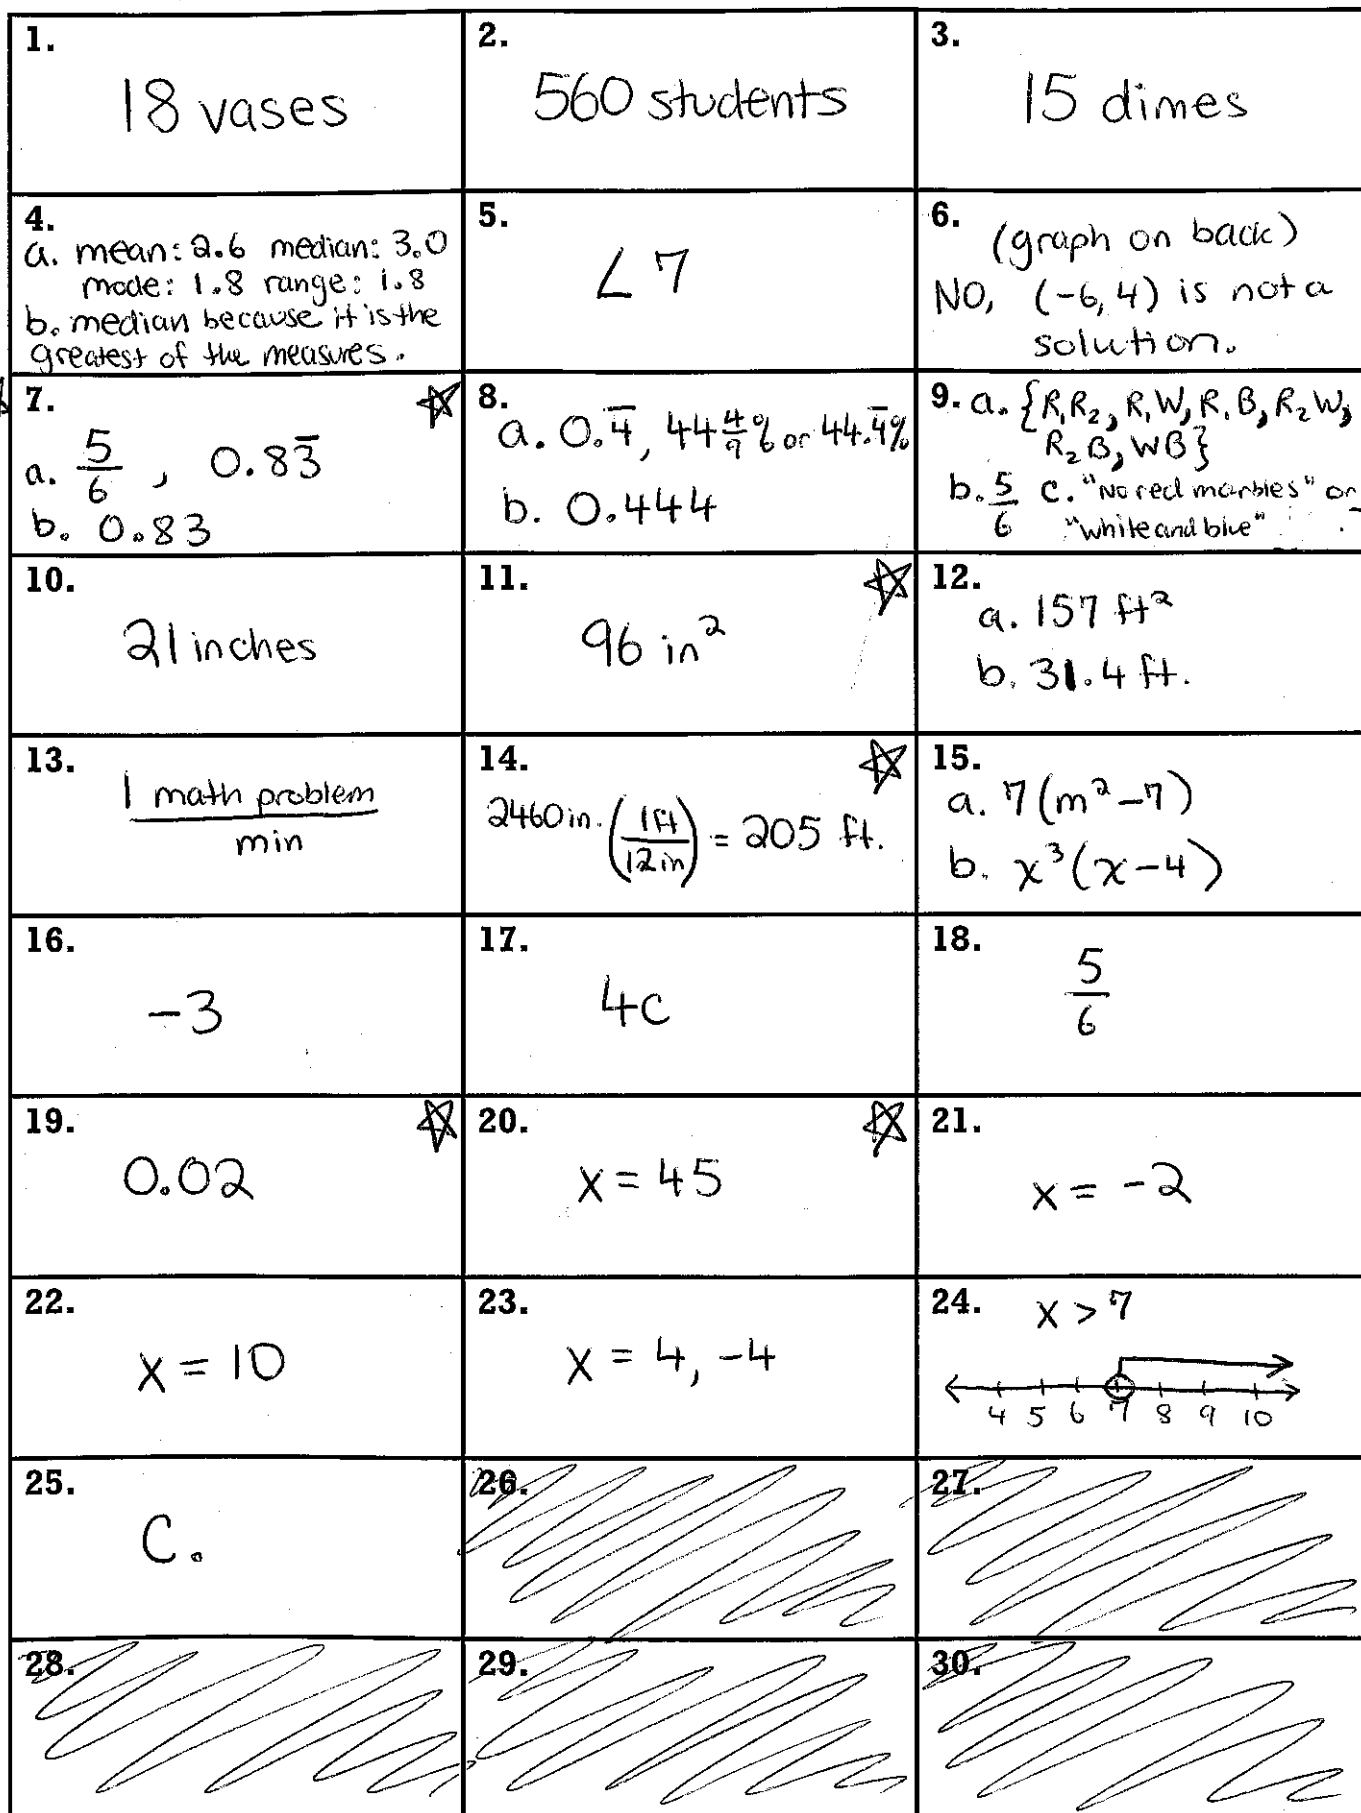 1.
18 vases
2.
560 students
3.
15 dimes
4.
a. mean: 2.6 median: 3.0
mode: 1.8 range: 1.8
b. median because it is the
greatest of the measures.
5.
∠7
6.
(graph on back)
NO, (-6,4) is not a
solution.
7.
a. 5/6, 0.83̅
b. 0.83
8.
a. 0.4̅, 44 4/9% or 44.4̅%
b. 0.444
9. a. {R₁R₂, R₁W, R₁B, R₂W,
R₂B, WB}
b. 5/6 c. "No red marbles" or
"white and blue"
10.
21 inches
11.
96 in²
12.
a. 157 ft²
b. 31.4 ft.
13.
1 math problem
min
14.
2460 in. (1ft/12in) = 205 ft.
15.
a. 7(m²-7)
b. x³(x-4)
16.
-3
17.
4c
18.
5/6
19.
0.02
20.
x = 45
21.
x = -2
22.
x = 10
23.
x = 4, -4
24.
x > 7
4 5 6 7 8 9 10
25.
C.
26.
27.
28.
29.
30.